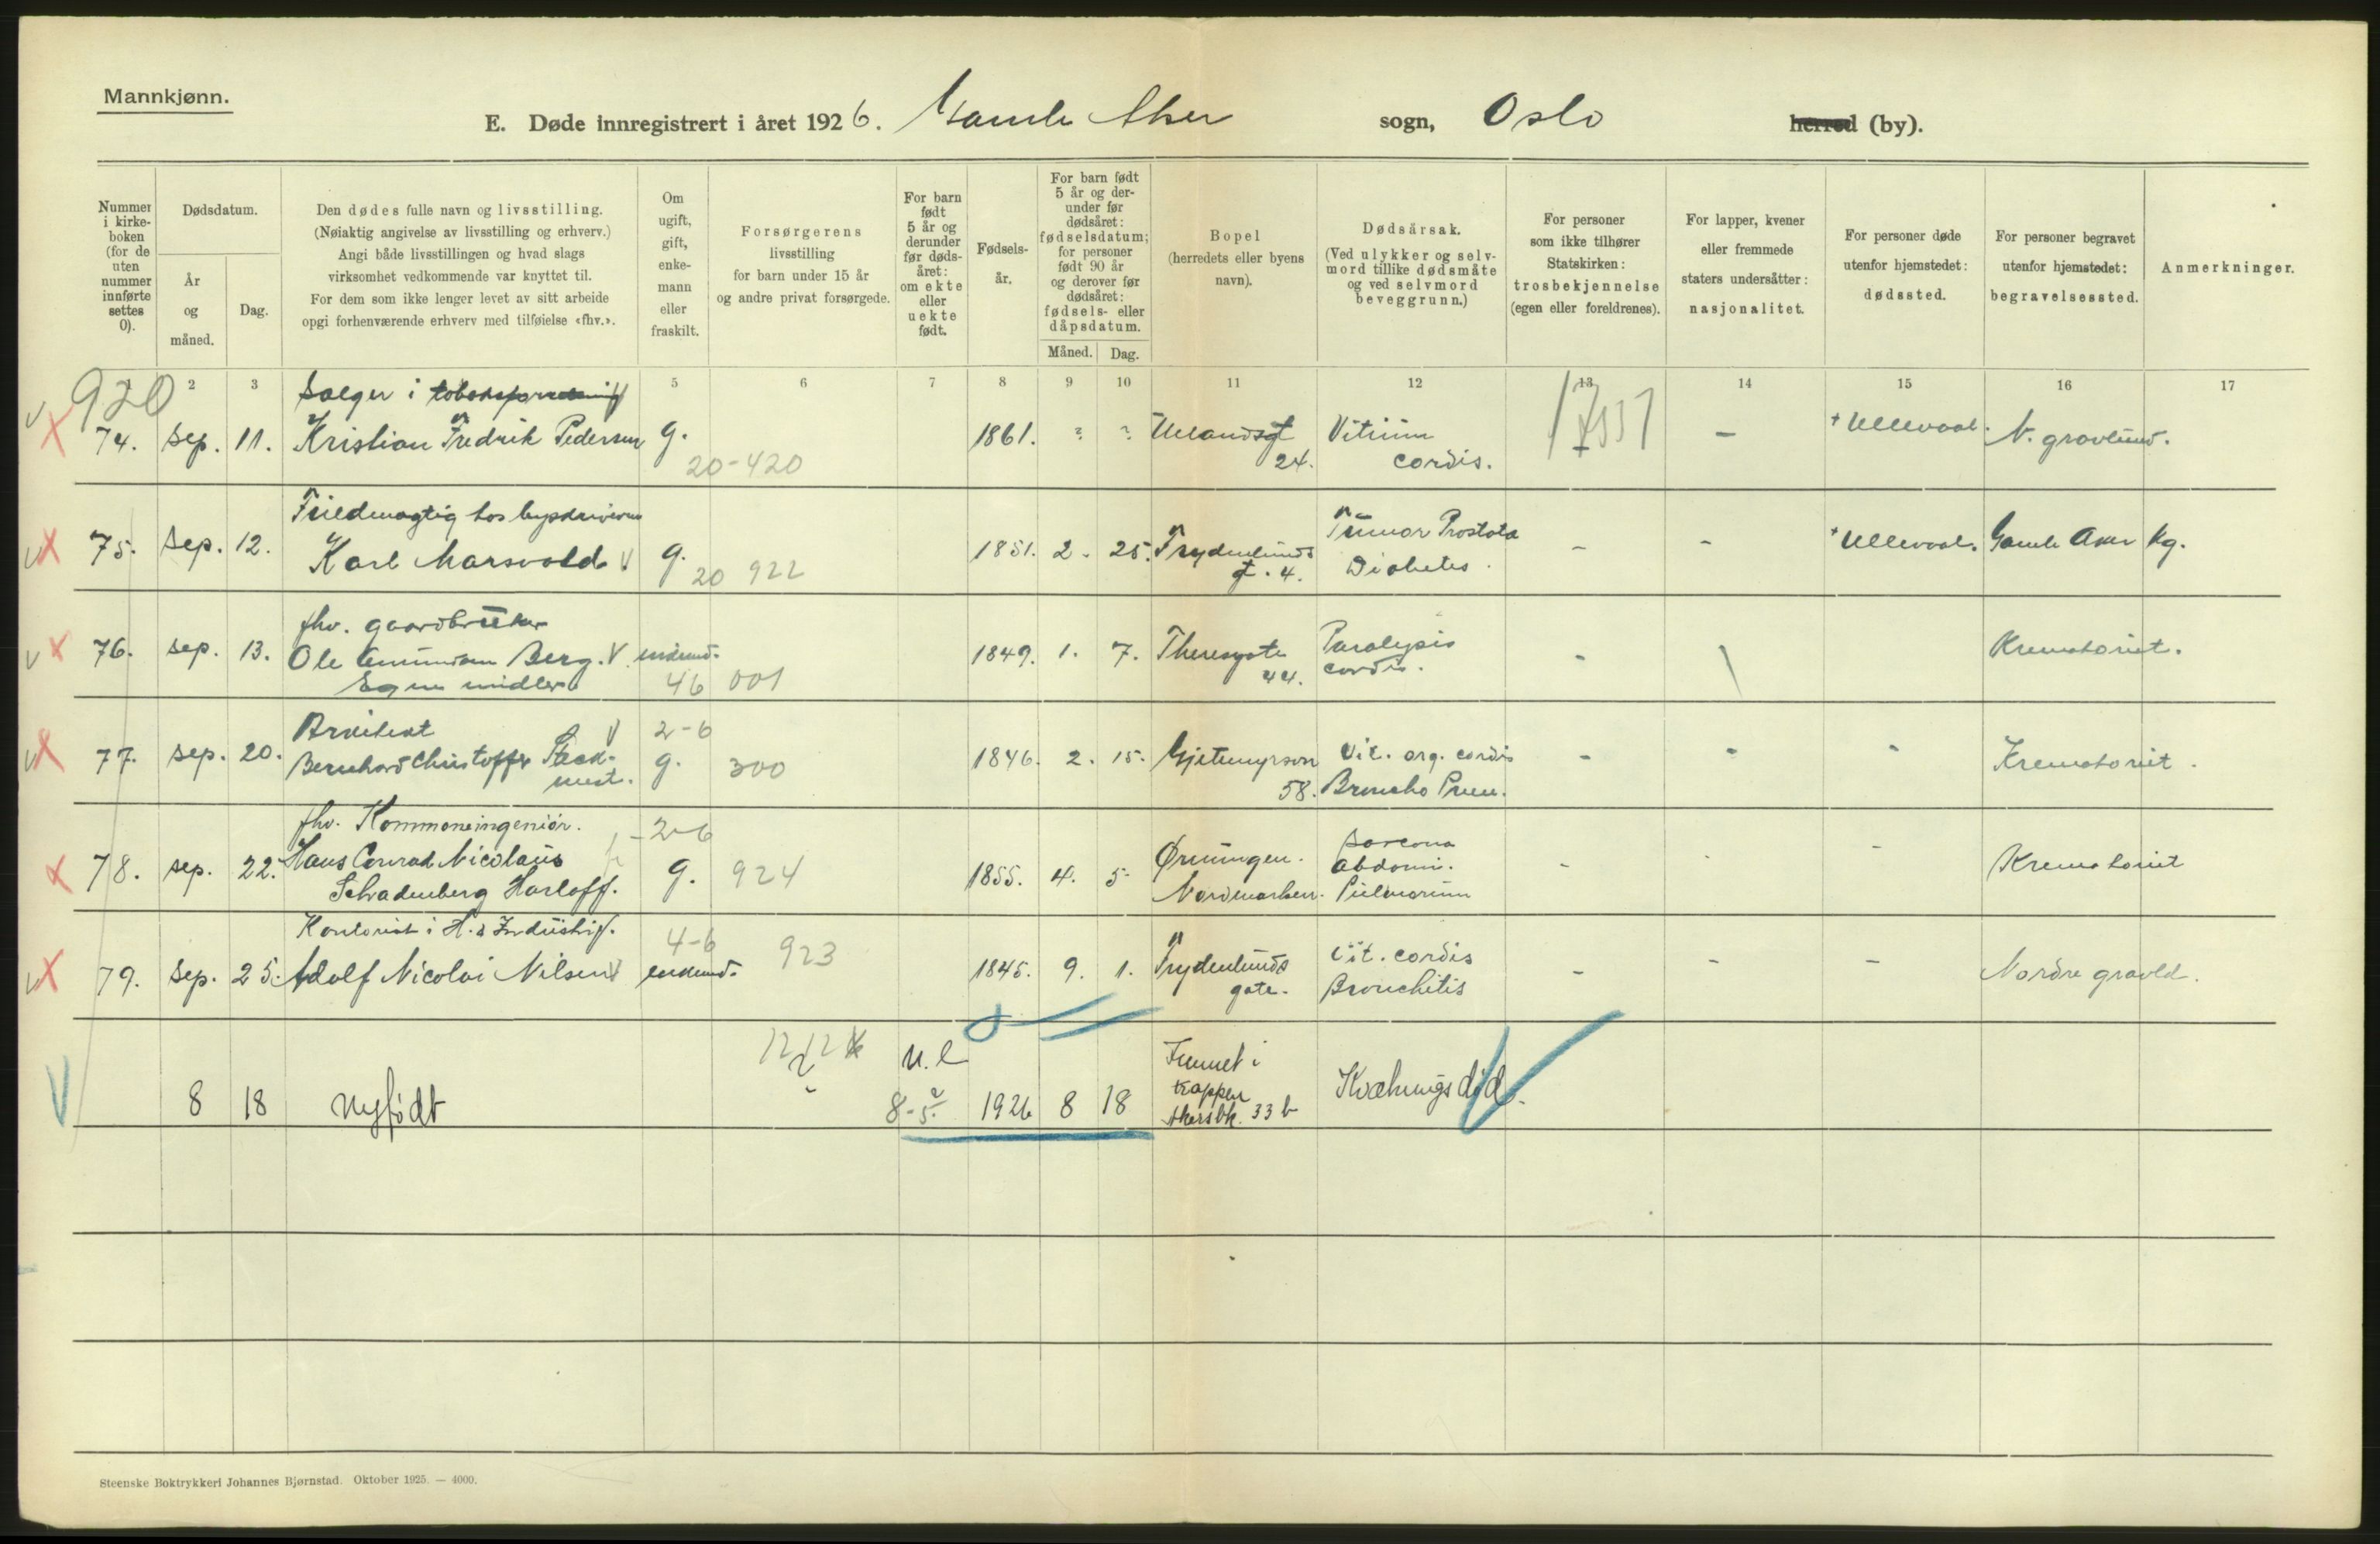 Mannkjønn.
E. Døde innregistrert i året 1926. Gamle Aker sogn, Oslo herred (by).
Nummer i kirkeboken (for de uten nummer innførte settes 0).
Dødsdatum.
År og måned.
Dag.
Den dødes fulle navn og livsstilling.
(Nøiaktig angivelse av livsstilling og erhverv.)
Angi både livsstillingen og hvad slags
virksomhet vedkommende var knyttet til.
For dem som ikke lenger levet av sitt arbeide
opgi forhenværende erhverv med tilføielse «fhv.».
Om ugift, gift, enkemann eller fraskilt.
Forsørgerens
livsstilling
for barn under 15 år
og andre privat forsørgede.
For barn født 5 år og derunder før dødsåret: om ekte eller uekte født.
Fødselsår.
For barn født 5 år og derunder før dødsåret: fødselsdatum; for personer født 90 år og derover før dødsåret: fødsels- eller dåpsdatum.
Måned. Dag.
Bopel
(herredets eller byens
navn).
Dødsårsak.
(Ved ulykker og selvmord tillike dødsmåte og ved selvmord beveggrunn.)
For personer
som ikke tilhører
Statskirken:
trosbekjennelse
(egen eller foreldrenes).
For lapper, kvener
eller fremmede
staters undersåtter:
nasjonalitet.
For personer døde
utenfor hjemstedet:
dødssted.
For personer begravet
utenfor hjemstedet:
begravelsessted.
Anmerkninger.
920 2 3 5 6 7 8 9 10 11 12 13 14 15 16 17
Sælger i
74. Sep. 11. Kristian Fredrik Pedersen g. 20-420 1861. ? ? Uelandsgt 24. Vitium cordis. - Ullevaal. N. gravlund.
75. Sep. 12. Karl Marsvold g. 20 922 1851. 2. 25. Frydenlunds gt. 4. Tumor Prostata Diabetes. - - Ullevaal. Gamle Aker Kg.
fhv. gaardbruker
76. Sep. 13. Ole Amundsen Berg. enkemd. 46 001 1849. 1. 7. Theresgate 44. Paralysis cordis. - Krematoriet.
Egne midler
Arkitekt 2-6
77. Sep. 20. Bernhard Christoffer Steckmest. g. 300 1846. 2. 15. Gjetemyrsvn 58. Vit. org. cordis Broncho Pneu. - - - Krematoriet.
fhv. Kommuneingeniør. 2-6
78. Sep. 22. Hans Conrad Nicolaus Schadenberg Harloff. g. 924 1855. 4. 5. Nordmarken. Sarcoma Abdomin. Pulmonum - - - Krematoriet
Kontorist i H. & Industrif. 4-6
79. Sep. 25. Adolf Nicolai Nilsen enkemd. 923 1845. 9. 1. Frydenlunds gate. Vit. cordis Bronchitis - - - Nordre gravld.
8 18 Nyfødt u. e 8-5 1926 8 18 Funnet i trappen Akersbk. 33 b Kvælningsdød.
Steenske Boktrykkeri Johannes Bjørnstad. Oktober 1925. — 4000.